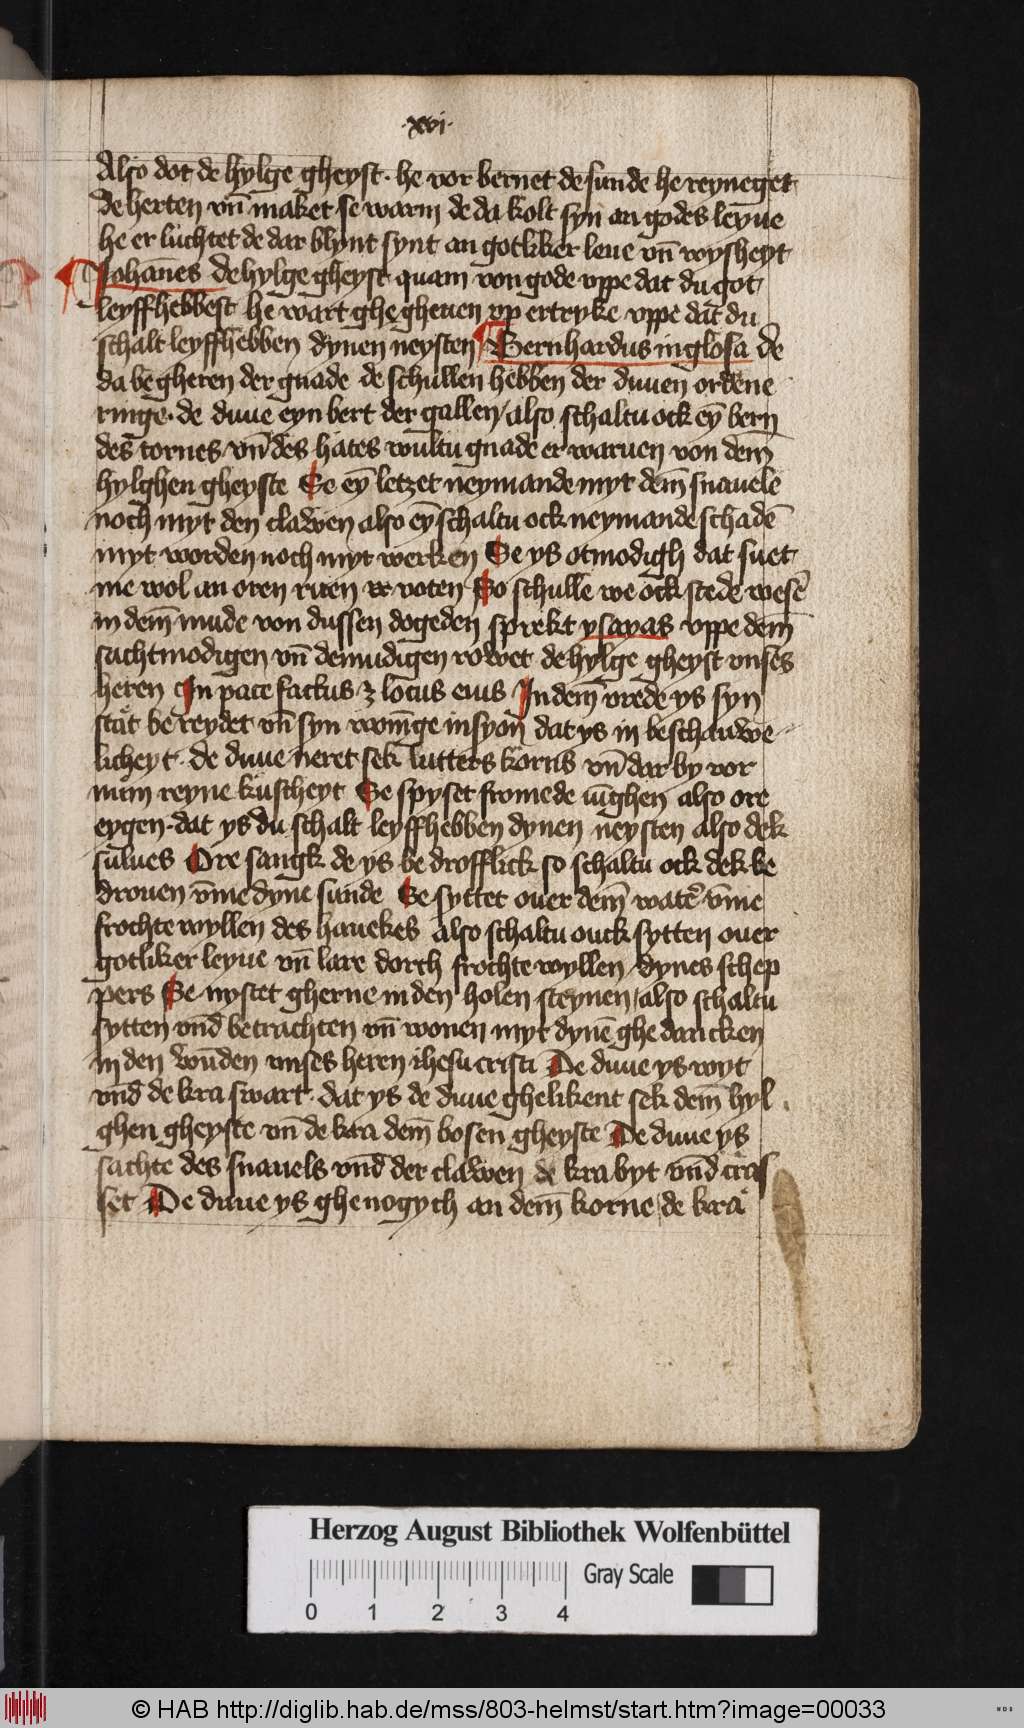 ·xvi·
Also dot de hylge gheyst · he vor bernet de sunde he reyneget
de herten vn̄ maket se warm de da kolt syn an godes leyue
he er luchtet de dar blynt synt an gotliker leue vn̄ wysheyt
Johān̄es de hylge gheyst quam von gode vppe dat du got
leyff hebbest he wart ghe gheuen vp ertryke vppe dat du
schalt leyff hebben dynen neysten Bernhardus in glosa de
da begheren der gnade de schullen hebben der duuen ordene
ringe · de duue eyn bert der gallen / also schaltu ock eȳ bern
des tornes / vn̄ des hates wultu gnade er waruen von dem̄
hylghen gheyste Se eȳ letzet neymande myt dem̄ snauele
noch myt den clawen also eȳ schaltu ock neymande schadē
myt worden noch myt werken Se ys otmodigh dat suet
me wol an oren roten voten So schulle we ock stede wesē
in dem̄ mude von dussen dogeden sprekt ysayas vppe dem̄
sachtmodigen vn̄ demudigen rowet de hylge gheyst vnses
heren In pace factus ꝫ locus eius In dem̄ vrede ys syn
stat be reydet vn̄ syn wonīge in syon dat ys in beschauwe
licheyt · de duue neret sek lutters korns vn̄ dar by vor
nim reyne kuscheyt Se spyset fromede iūghen also ore
eygen · dat ys du schalt leyff hebben dynen neysten also dek
sulues Ore sangk de ys be drofflick so schaltu ock dek be
drouen vm̄e dyne sunde Se syttet ouer dem̄ watē vm̄e
frochte wyllen des hauekes also schaltu ouck sytten ouer
gotliker leyue vn̄ lare dorch frochte wyllen / dynes schep
pers Se nystet gherne in den holen steynen / also schaltu
sytten vnd betrachten vn̄ wonen myt dynē ghe dancken
in den wūden vnses heren ihesu cristi De duue ys wyt
vnd de kra swart · dat ys de duue ghelikent sek dem̄ hyl
ghen gheyste vn̄ de kra dem̄ bosen gheyste De duue ys
sachte des snauels vnd der clawen de kra byt vnd cras
set De duue ys ghenogych an dem̄ korne / de kra
Herzog August Bibliothek Wolfenbüttel
Gray Scale
0 1 2 3 4
© HAB http://diglib.hab.de/mss/803-helmst/start.htm?image=00033